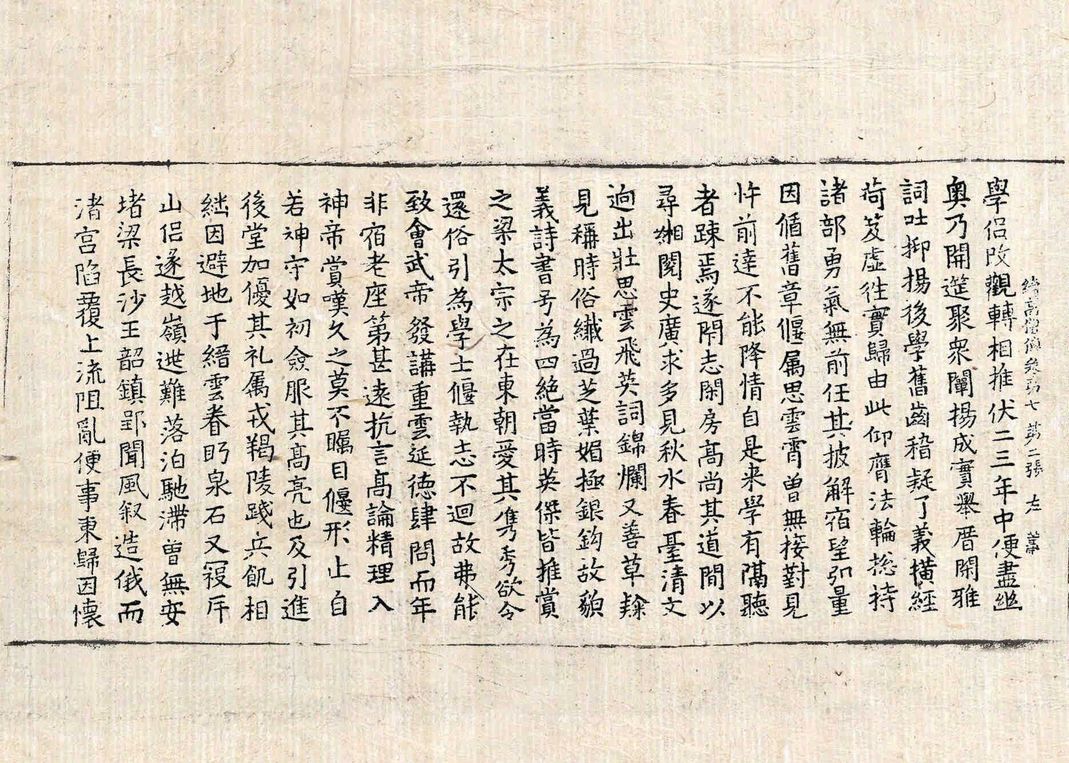 學侶改觀轉相推伏二三年中便盡幽
續高僧傳卷苐七 苐二張 左
奧乃開筵聚衆闡揚成實舉厝閑雅
詞吐抑揚後學舊齒稽疑了義橫經
荷笈虛徃實歸由此仰膺法輪揔持
諸部勇氣無前任其披解宿望弘量
因循舊章偃属思雲霄曽無接對見
忤前達不能降情自是来學有隔聽
者踈焉遂閇志閑房髙尚其道間以
尋緗閱史廣求多見秋水春臺清文
逈出壯思雲飛英詞錦爛又善草隷
見稱時俗纎過芝葉媚極銀鈎故貌
義詩書号為四絶當時英傑皆推賞
之梁太宗之在東朝愛其儁秀欲令
還俗引為學士偃執志不迴故弗能
致會武帝發講重雲延德肆問而年
非宿老座第甚遠抗言髙論精理入
神帝賞嘆久之莫不矚目偃形止自
若神守如初僉服其髙亮也及引進
後堂加優其礼属戎羯陵踐兵飢相
継因避地于縉雲眷眄泉石又寇斥
山侶遂越嶺逃難落泊馳滯曽無安
堵梁長沙王韶鎮郢聞風叙造俄而
渚宮陷覆上流阻亂便事東歸因懷